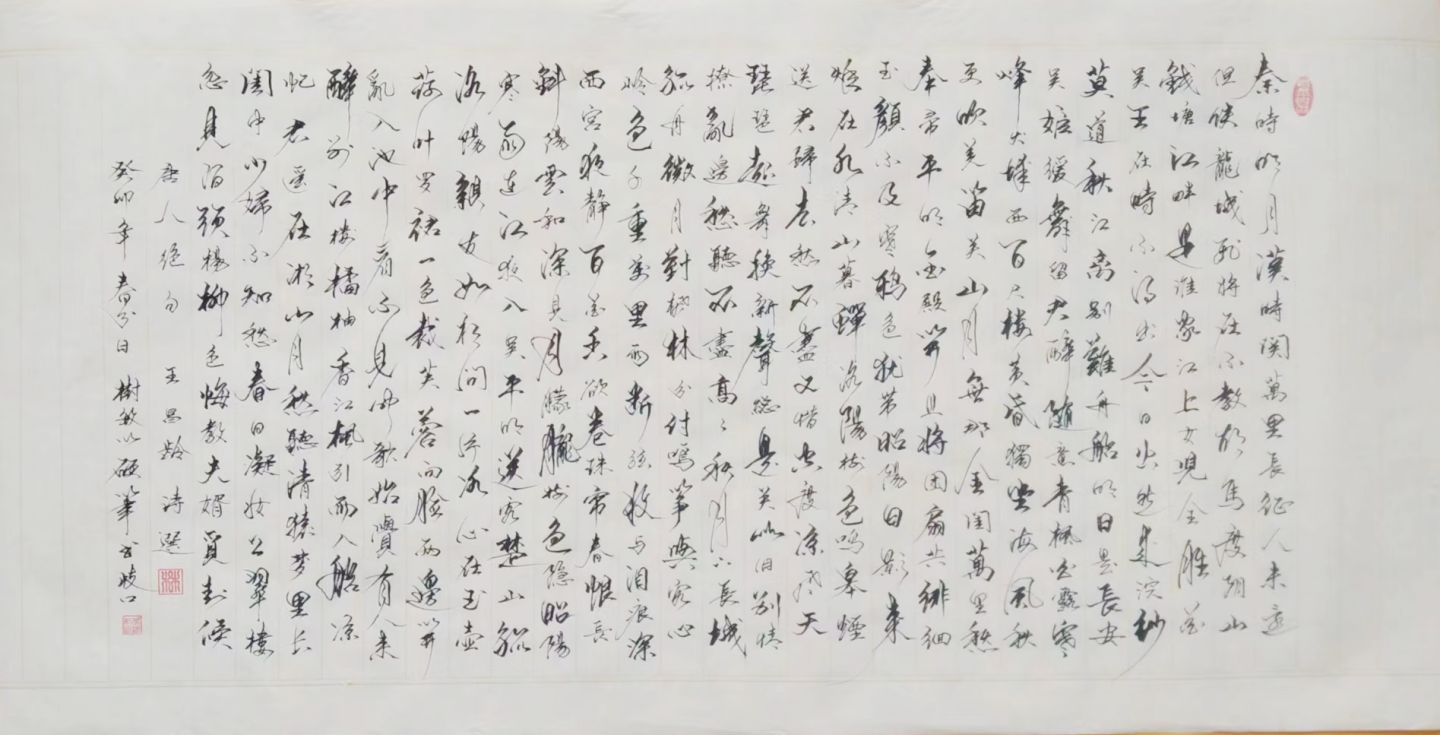 秦時明月漢時関萬里長征人未還
但使龍城飛將在不教胡馬度阴山
錢塘江畔是誰家江上女兒全勝花
吴王在時不得出今日公然來浣紗
莫道秋江离别難舟船明日是長安
吴姬緩舞留君醉随意青楓白露寒
烽火城西百尺樓黄昏獨坐海風秋
更吹羌笛关山月無那金閨萬里愁
奉帚平明金殿開且將团扇共徘徊
玉顔不及寒鴉色犹带昭陽日影來
在水清山暮蟬洛陽樹色鳴皋煙
送君歸去愁不盡又惜空度凉風天
琵琶起舞换新聲總是关山旧别情
撩亂邊愁聽不盡高々秋月下長城
孤舟微月對楓林分付鳴筝與客心
岭色千重萬里雨断弦收与淚痕深
西宫夜静百花香欲卷珠帘春恨長
斜抱雲和深見月朦朧樹色隱昭陽
寒雨连江夜入吴平明送客楚山孤
洛陽親友如相問一片冰心在玉壺
荷叶罗裙一色裁芙蓉向臉兩邊開
亂入池中看不見聞歌始覺有人來
醉别江樓橘柚香江楓引雨入船凉
忆君遥在湘山月愁聽清猿梦里长
閨中少婦不知愁春日凝妝上翠樓
忽見陌頭楊柳色悔教夫婿覓封侯
唐人绝句 王昌龄 诗選
癸卯年春分日樹敏以硬筆書